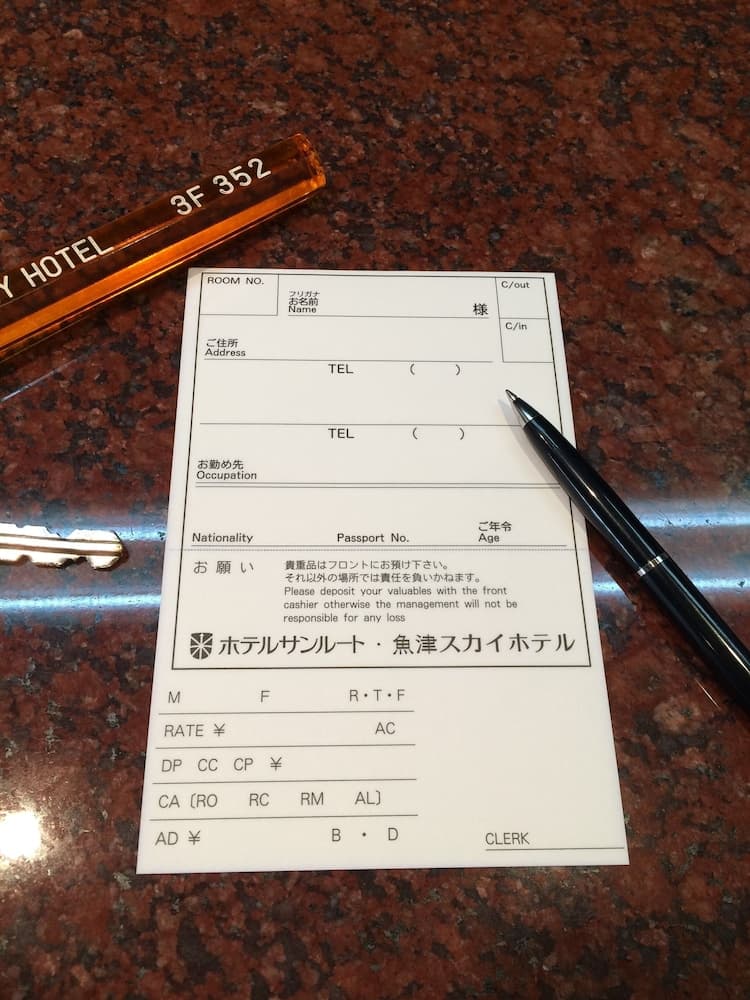 Y HOTEL 3F 352
ROOM NO.
フリガナ
お名前
Name 様
C/out
C/in
ご住所
Address
TEL ( )
TEL ( )
お勤め先
Occupation
Nationality Passport No. ご年令
Age
お願い 貴重品はフロントにお預け下さい。
それ以外の場所では責任を負いかねます。
Please deposit your valuables with the front
cashier otherwise the management will not be
responsible for any loss
ホテルサンルート・魚津スカイホテル
M F R・T・F
RATE ¥ AC
DP CC CP ¥
CA〔RO RC RM AL〕
AD ¥ B・D
CLERK